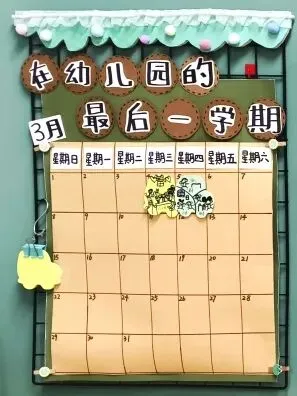 在幼儿园的
最后一学期
3月
星期日 星期一 星期二 星期三 星期四 星期五 星期六
1 2 3 5 6 7
8 9 10 11 12 13 14
15 16 17 18 19 20 21
22 23 24 25 26 27 28
29 30 31